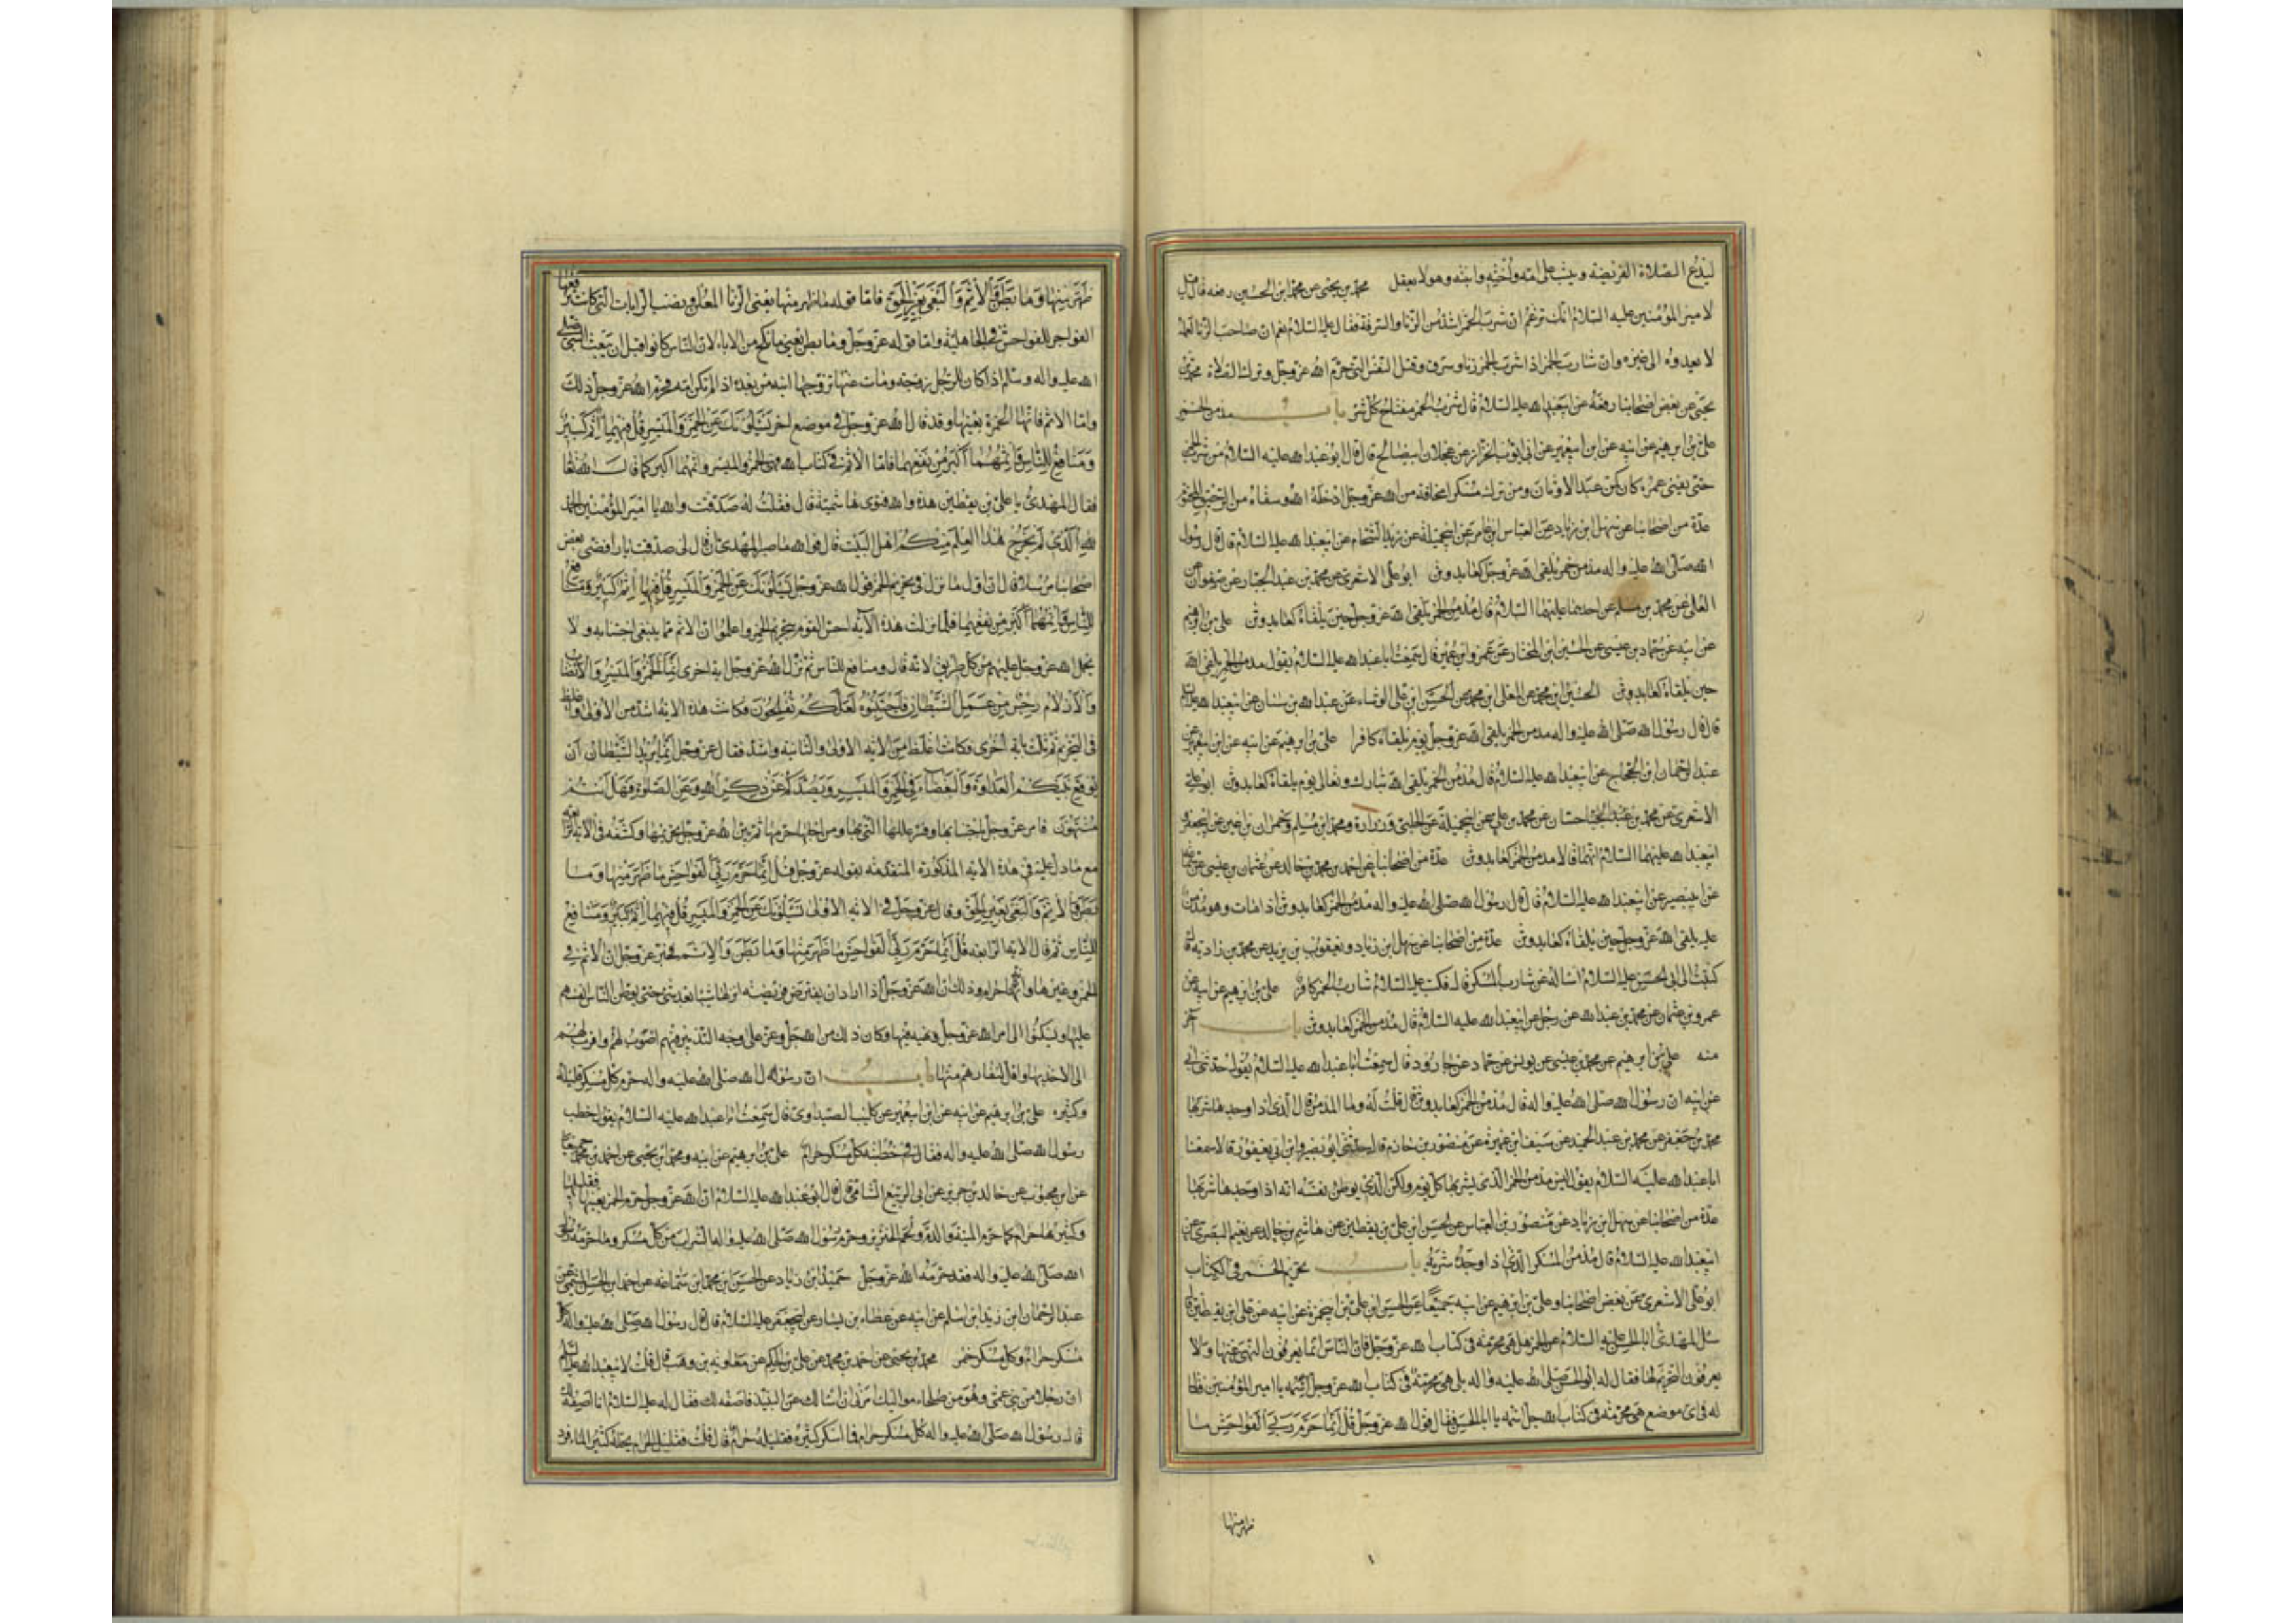 ليدع الصلاة الفريضة ويثب على امه واخته وابنته وهو لا يعقل محمد بن يحيى عن محمد ابن الحسين رفعه قال قيل
لامير المؤمنين عليه السلام انك تزعم ان شرب الخمر اشد من الزنا والسرقة فقال عليه السلام نعم ان صاحب الزنا لعله
لا يعدوه الى غيره وان شارب الخمر اذا شرب الخمر زنا وسرق وقتل النفس التى حرم الله عز وجل وترك الصلاة محمد بن
يحيى عن بعض اصحابنا رفعه عن ابيعبد الله عليه السلام قال شرب الخمر مفتاح كل شر باب مدمن الخمر
على بن ابرهيم عن ابيه عن ابن ابيعمير عن ابى ايوب الخزاز عن عجلان ابيصالح قال قال ابو عبد الله عليه السلام من شرب الخمر
حتى يفنى عمره كان كمن عبد الاوثان ومن ترك مسكرا مخافة من الله عز وجل ادخله الله وسقاه من الرحيق المختوم
عدة من اصحابنا عن سهل ابن زياد عن العباس ابن عامر عن ابيجميلة عن زيد الشحام عن ابيعبد الله عليه السلام قال قال رسول
الله صلى الله عليه واله مدمن خمر يلقى الله عز وجل كعابد وثن ابو على الاشعرى عن محمد بن عبد الجبار عن صفوان عن
العلى عن محمد بن مسلم عن احدهما عليهما السلام قال مدمن الخمر يلقى الله عز وجل حين يلقاه كعابد وثن على بن ابرهيم
عن ابيه عن حماد بن عيسى عن الحسين ابن المختار عن عمرو ابن عثمن قال سمعت ابا عبد الله عليه السلام يقول مدمن الخمر يلقى الله
حين يلقاه كعابد وثن الحسين ابن محمد عن المعلى ابن محمد عن الحسن ابن على الوشاء عن عبد الله بن سنان عن ابيعبد الله عليه السلام
قال قال رسول الله صلى الله عليه واله مدمن الخمر يلقى الله عز وجل يوم يلقاه كافرا على بن ابرهيم عن ابيه عن ابن ابيعمير عن
عبد الرحمان ابن الحجاج عن ابيعبد الله عليه السلام قال مدمن الخمر يلقى الله تبارك وتعالى يوم يلقاه كعابد وثن ابو على
الاشعرى عن محمد بن عبد الجبار عن محمد بن على عن ابيجميلة عن الحلبى وزرارة ومحمد ابن مسلم وحمران بن اعين عن ابيجعفر و
ابيعبد الله عليهما السلام انهما قالا مدمن الخمر كعابد وثن عدة من اصحابنا عن احمد بن محمد بن خالد عن عثمان بن عيسى عن سماعة
عن ابيبصير عن ابيعبد الله عليه السلام قال قال رسول الله صلى الله عليه واله مدمن الخمر كعابد وثن اذا مات وهو مدمن
عليه يلقى الله عز وجل حين يلقاه كعابد وثن عدة من اصحابنا عن سهل ابن زياد ويعقوب بن يزيد عن محمد بن زادبه قال
كتبت الى ابى الحسن عليه السلام اساله عن شارب المسكر قال فكتب عليه السلام شارب الخمر كافر على بن ابرهيم عن ابيه عن
عمرو بن عثمان عن محمد بن عبد الله عن رجل عن ابيعبد الله عليه السلام قال مدمن الخمر كعابد وثن باب آخر
منه على بن ابرهيم عن محمد بن عيسى عن يونس عن حماد عن جارود قال سمعت ابا عبد الله عليه السلام يقول حدثنى ابى
عن ابيه ان رسول الله صلى الله عليه واله قال مدمن الخمر كعابد وثن قال قلت له وما المدمن قال الذى اذا وجدها شربها
محمد بن جعفر عن محمد بن عبد الحميد عن سيف ابن عميرة عن منصور بن حازم قال حدثنى ابو بصير وابن ابى يعفور قالا سمعنا
ابا عبد الله عليه السلام يقول ليس مدمن الخمر الذى يشربها كل يوم ولكن الذى يوطن نفسه انه اذا وجدها شربها
عدة من اصحابنا عن سهل ابن زياد عن منصور بن العباس عن الحسن ابن على بن يقطين عن هاشم بن خالد عن نعيم البصرى عن
ابيعبد الله عليه السلام قال مدمن المسكر الذى اذا وجده شربه باب تحريم الخمر فى الكتاب
ابو على الاشعرى عن بعض اصحابنا وعلى بن ابرهيم عن ابيه جميعا عن الحسن ابن على بن ابيحمزة عن ابيه عن على ابن يقطين قال
سئل المهدى ابا الحسن عليه السلام عن الخمر هل هى محرمة فى كتاب الله عز وجل فان الناس انما يعرفون النهى عنها ولا
يعرفون التحريم لها فقال له ابو الحسن صلى الله عليه واله بلى هى محرمة فى كتاب الله عز وجل يا امير المؤمنين فقال
له فى اى موضع هى محرمة فى كتاب الله جل اسمه يا ابا الحسن فقال قول الله عز وجل قل انما حرم ربى الفواحش ما
ظهر منها
ظهر منها وما بطن والاثم والبغى بغير الحق فاما قوله ما ظهر منها يعنى الزنا المعلن ونصب الرايات التى كانت ترفعها
الفواجر للفواحش فى الجاهلية واما قوله عز وجل وما بطن يعنى ما نكح من الاباء لان الناس كانوا قبل ان يبعث النبى صلى
الله عليه واله وسلم اذا كان للرجل زوجة ومات عنها تزوجها ابنه من بعده اذا لم تكن امه فحرم الله عز وجل ذلك
واما الاثم فانها الخمرة بعينها وقد قال الله عز وجل فى موضع اخر يسئلونك عن الخمر والميسر قل فيهما اثم كبير
ومنافع للناس واثمهما اكبر من نفعهما فاما الاثم فى كتاب الله فهى الخمر والميسر واثمهما اكبر كما قال الله تعالى
فقال المهدى يا على بن يقطين هذه والله فتوى هاشمية قال فقلت له صدقت والله يا امير المؤمنين الحمد
لله الذى لم يخرج هذا العلم منكم اهل البيت قال فوالله ما صبر المهدى ان قال لى صدقت يا رافضى بعض
اصحابنا مرسلا قال ان اول ما نزل فى تحريم الخمر قول الله عز وجل يسئلونك عن الخمر والميسر قل فيهما اثم كبير ومنافع
للناس واثمهما اكبر من نفعهما فلما نزلت هذه الآية احس القوم بتحريم الخمر واعلموا ان الاثم مما ينبغى اجتنابه ولا
يحمل الله عز وجل عليهم من كل طريق لانه قال ومنافع للناس ثم نزل الله عز وجل اية اخرى انما الخمر والميسر والانصاب
والازلام رجس من عمل الشيطان فاجتنبوه لعلكم تفلحون فكانت هذه الاية اشد من الاولى واغلظ
فى التحريم ثم ثلث باية اخرى فكانت اغلظ من الاية الاولى والثانية واشد فقال عز وجل انما يريد الشيطان ان
يوقع بينكم العداوة والبغضاء فى الخمر والميسر ويصدكم عن ذكر الله وعن الصلوة فهل انتم
منتهون فامر عز وجل باجتنابها وفسر عللها التى لها ومن اجلها حرمها ثم بين الله عز وجل تحريمها وكشفه فى الاية الرابعة
مع ما دل عليه فى هذه الاية المذكورة المتقدمة بقوله عز وجل قل انما حرم ربى الفواحش ما ظهر منها وما
بطن والاثم والبغى بغير الحق وقال عز وجل فى الاية الاولى يسئلونك عن الخمر والميسر قل فيهما اثم كبير ومنافع
للناس ثم قال الاية الرابعة قل انما حرم ربى الفواحش ما ظهر منها وما بطن والاثم فخبر عز وجل ان الاثم فى
الخمر وغيرها وانه حرام وذلك ان الله عز وجل اذا اراد ان يفترض فريضة انزلها شيئا بعد شئ حتى يوطن الناس انفسهم
عليها ويسكنوا الى امر الله عز وجل ونهيه فيها وكان ذلك من الله جل وعز على وجه التدبير فيهم اصوب لهم واقرب لهم
الى الاخذ بها واقل لنفارهم منها باب ان رسول الله صلى الله عليه واله حرم كل مسكر قليله
وكثيره على بن ابرهيم عن ابيه عن ابن ابيعمير عن كليب الصيداوى قال سمعت ابا عبد الله عليه السلام يقول خطب
رسول الله صلى الله عليه واله فقال فى خطبته كل مسكر حرام على بن ابرهيم عن ابيه ومحمد ابن يحيى عن احمد بن محمد جميعا
عن ابن محبوب عن خالد بن جرير عن ابى الربيع الشامى قال قال ابو عبد الله عليه السلام ان الله عز وجل حرم الخمر بعينها فقليلها
وكثيرها حرام كما حرم الميتة والدم ولحم الخنزير وحرم رسول الله صلى الله عليه واله الشراب من كل مسكر وما حرمه رسول
الله صلى الله عليه واله فقد حرمه الله عز وجل حميد ابن زياد عن الحسن ابن محمد ابن سماعة عن احمد ابن الحسن الميثمى عن
عبد الرحمان ابن زيد ابن اسلم عن ابيه عن عطاء بن يسار عن ابيجعفر عليه السلام قال قال رسول الله صلى الله عليه واله كل
مسكر حرام وكل مسكر خمر محمد بن يحيى عن احمد بن محمد عن على بن الحكم عن معاوية بن وهب قال قلت لابيعبد الله عليه السلام
ان رجلا من بنى عمى وهو من صلحاء مواليك امرنى ان اسالك عن النبيذ فاصفه لك فقال له عليه السلام انا اصفه لك
قال رسول الله صلى الله عليه واله كل مسكر حرام فما اسكر كثيره فقليله حرام قال قلت فقليل الحرام يحله كثير الماء فرد